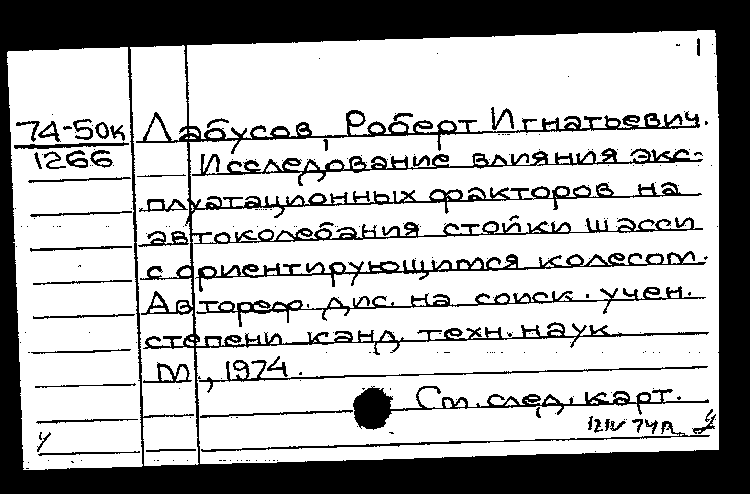 1
74-50к Лабусов, Роберт Игнатьевич.
1266 Исследование влияния экс-
плуатационных факторов на
автоколебания стойки шасси
с ориентирующимся колесом.
Автореф. дис. на соиск. учен.
степени канд. техн. наук.
М, 1974.
См. след. карт.
у